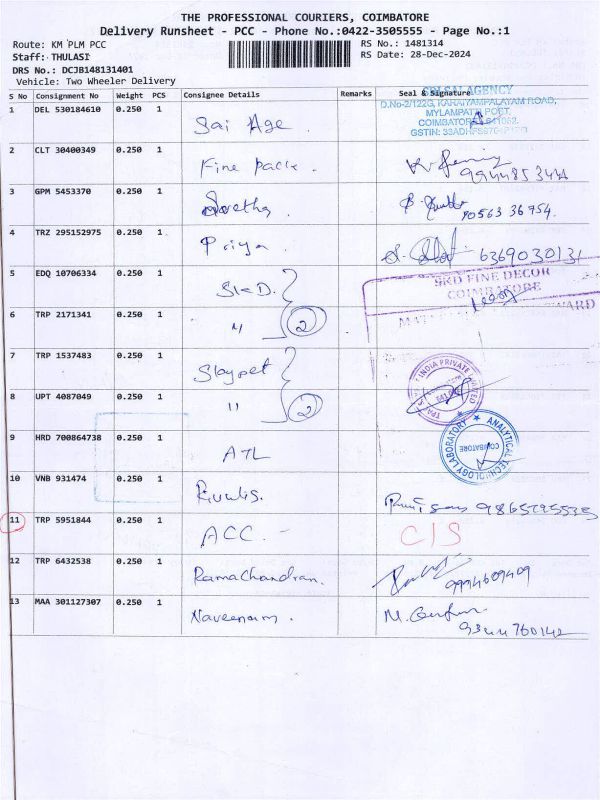 THE PROFESSIONAL COURIERS, COIMBATORE
Delivery Runsheet - PCC - Phone No.:0422-3505555 - Page No.:1
Route: KM PLM PCC RS No.: 1481314
Staff: THULASI RS Date: 28-Dec-2024
DRS No.: DCJB148131401
Vehicle: Two Wheeler Delivery
S No Consignment No Weight PCS Consignee Details Remarks Seal & Signature
SAI AGENCY
D.No-2/122G, KARAIYAMPALAYAM ROAD,
MYLAMPATTI POST,
COIMBATORE 641062.
1 DEL 530184610 0.250 1 Sai Age.
2 CLT 30400349 0.250 1 Fine pack. 9944853444
3 GPM 5453370 0.250 1 Swetha. 90563 36754.
4 TRZ 295152975 0.250 1 Priya. 6369030131
SRD FINE DECOR
COIMBATORE
5 EDQ 10706334 0.250 1
6 TRP 2171341 0.250 1 " 2
7 TRP 1537483 0.250 1
INDIA PRIVATE LIMITED
8 UPT 4087049 0.250 1 " 2
9 HRD 700864738 0.250 1 ATL
ANALYTICAL TECHNOLOGY LABORATORY
COIMBATORE
10 VNB 931474 0.250 1
11 TRP 5951844 0.250 1 ACC. C/S
12 TRP 6432538 0.250 1 Ramachandran. 9994609409
13 MAA 301127307 0.250 1 Naveenam. 9344760142